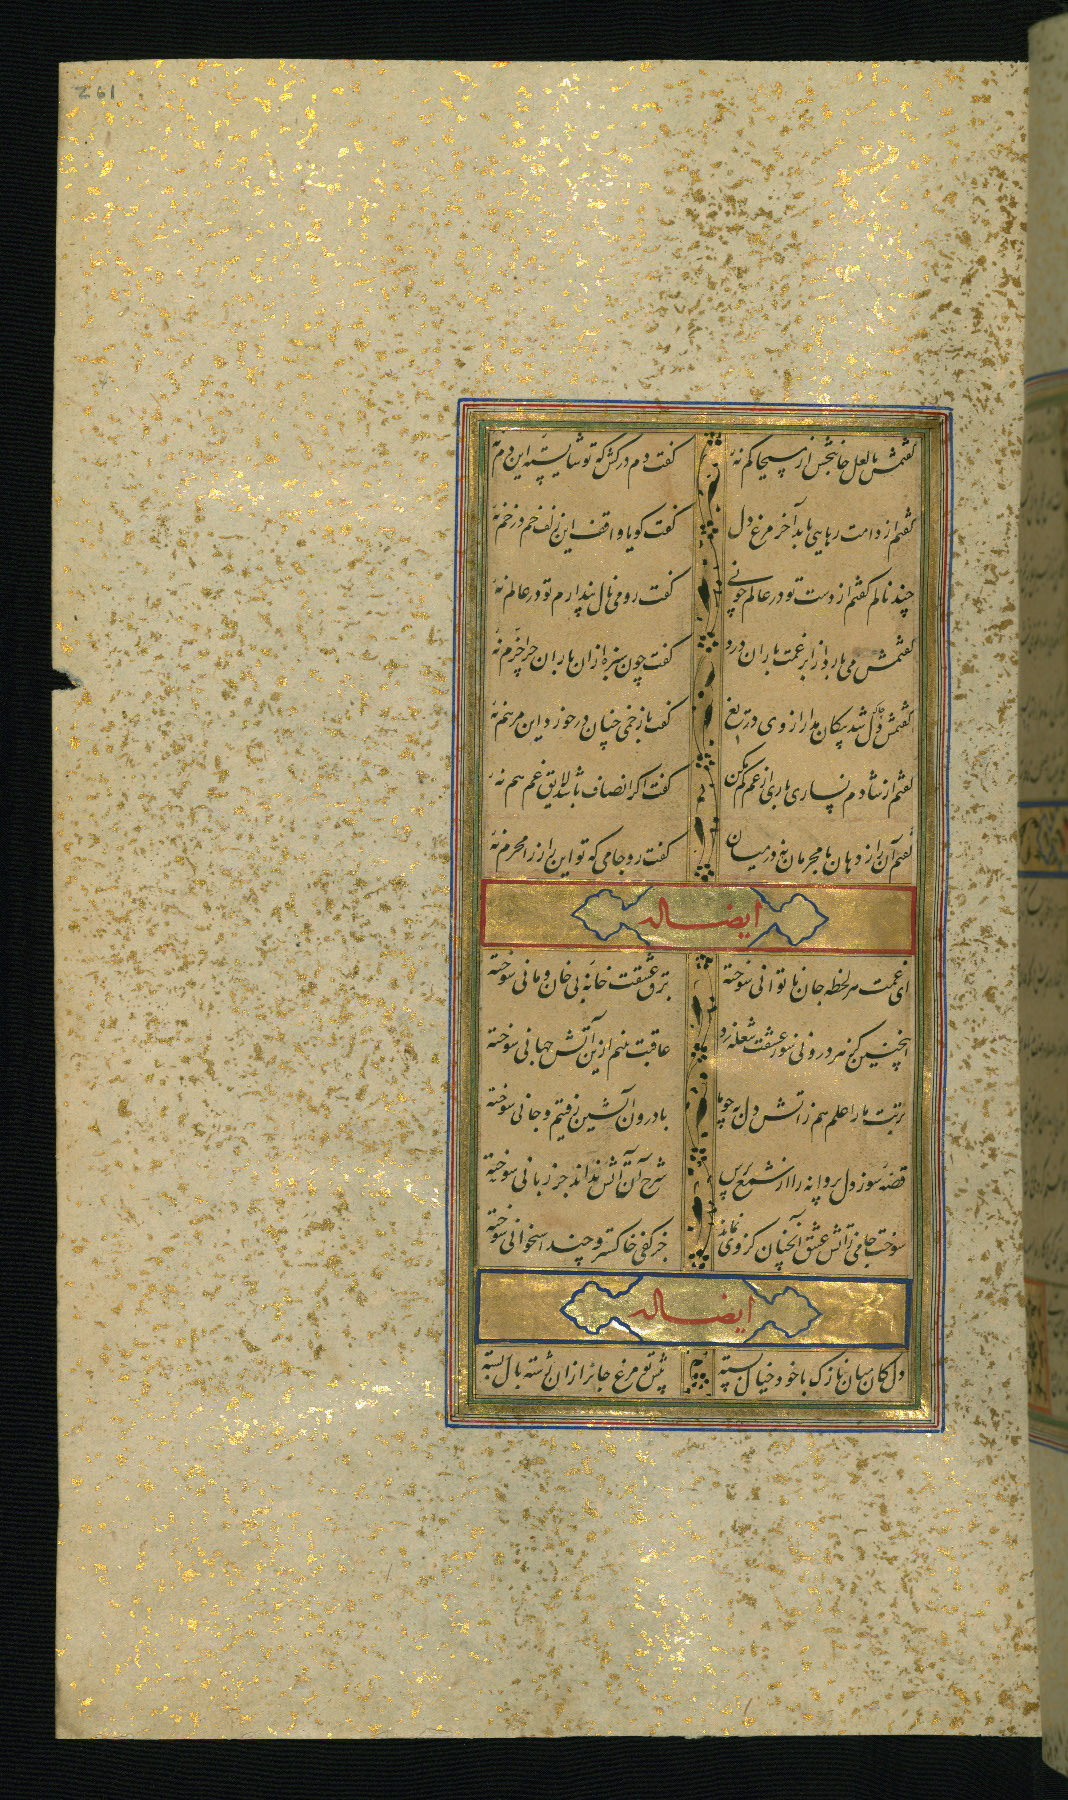 261
گفتمش با لعل جانبخش از مسیحا کم نهٔ گفت دم درکش که تو شایستهٔ این دم نهٔ
گفتم از دامت رهایی یابد آخر مرغ دل گفت گویا واقف این زلف خم در خم نهٔ
چند نالم گفتم از دست تو در عالم چو نی گفت رو می نال پندارم تو در عالم نهٔ
گفتمش می بارد از ابر غمت باران درد گفت چون سبزه از آن باران چرا خرم نهٔ
گفتمش دل چاک شد پیکان مدار از وی دریغ گفت با زخمی چنان در خورد این مرهم نهٔ
گفتم ار شادم نسازی باری از غم کم مکن گفت اگر انصاف باشد لایق غم هم نهٔ
گفتم آن راز دهان با محرمان نه در میان گفت رو جامی که تو این راز را محرم نهٔ
ایضا له
ای غمت هر لحظه جان ناتوانی سوخته برق عشقت خانهٔ بی خان و مانی سوخته
اینچنین کز هر درونی سوز عشقت شعله زد عاقبت بینم ازین آتش جهانی سوخته
تربت ما را علم هم ز آتش دل به چو ما با درون آتشین رفتیم و جانی سوخته
قصهٔ سوز دل پروانه را از شمع پرس شرح آن آتش نداند جز زبانی سوخته
سوخت جامی ز آتش عشق آنچنان کز وی نماند جز کفی خاکستر و چند استخوانی سوخته
ایضا له
دل کان میان نازک با خود خیال بسته پیش تو مرغ جانرا زان رشته بال بسته